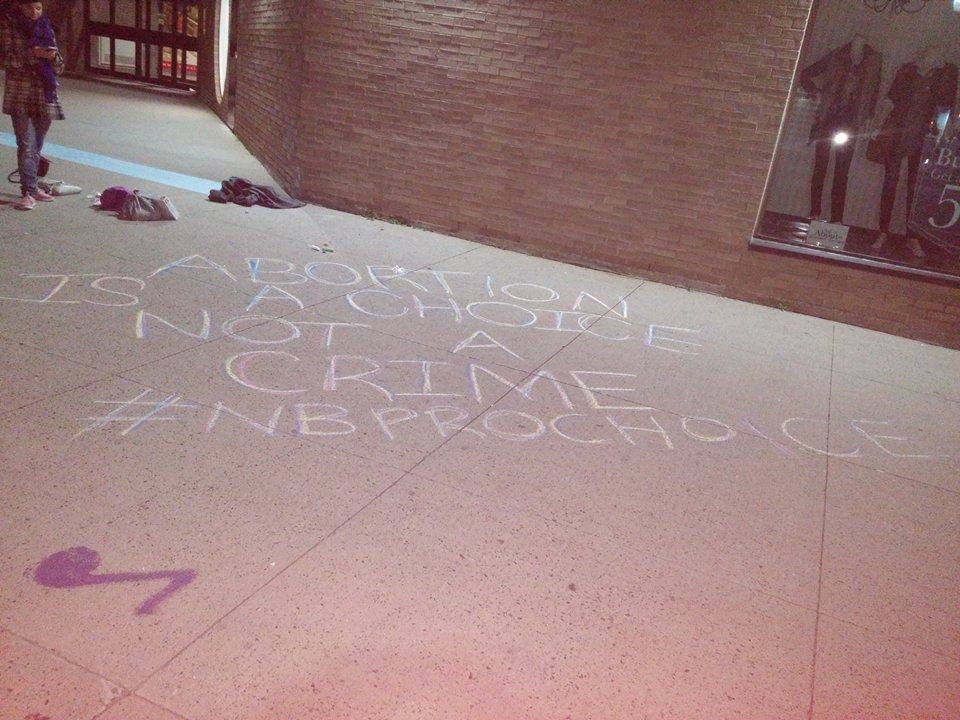 ABORTION
IS A CHOICE
NOT A
CRIME
#NBPROCHOICE
Bu
Get
5